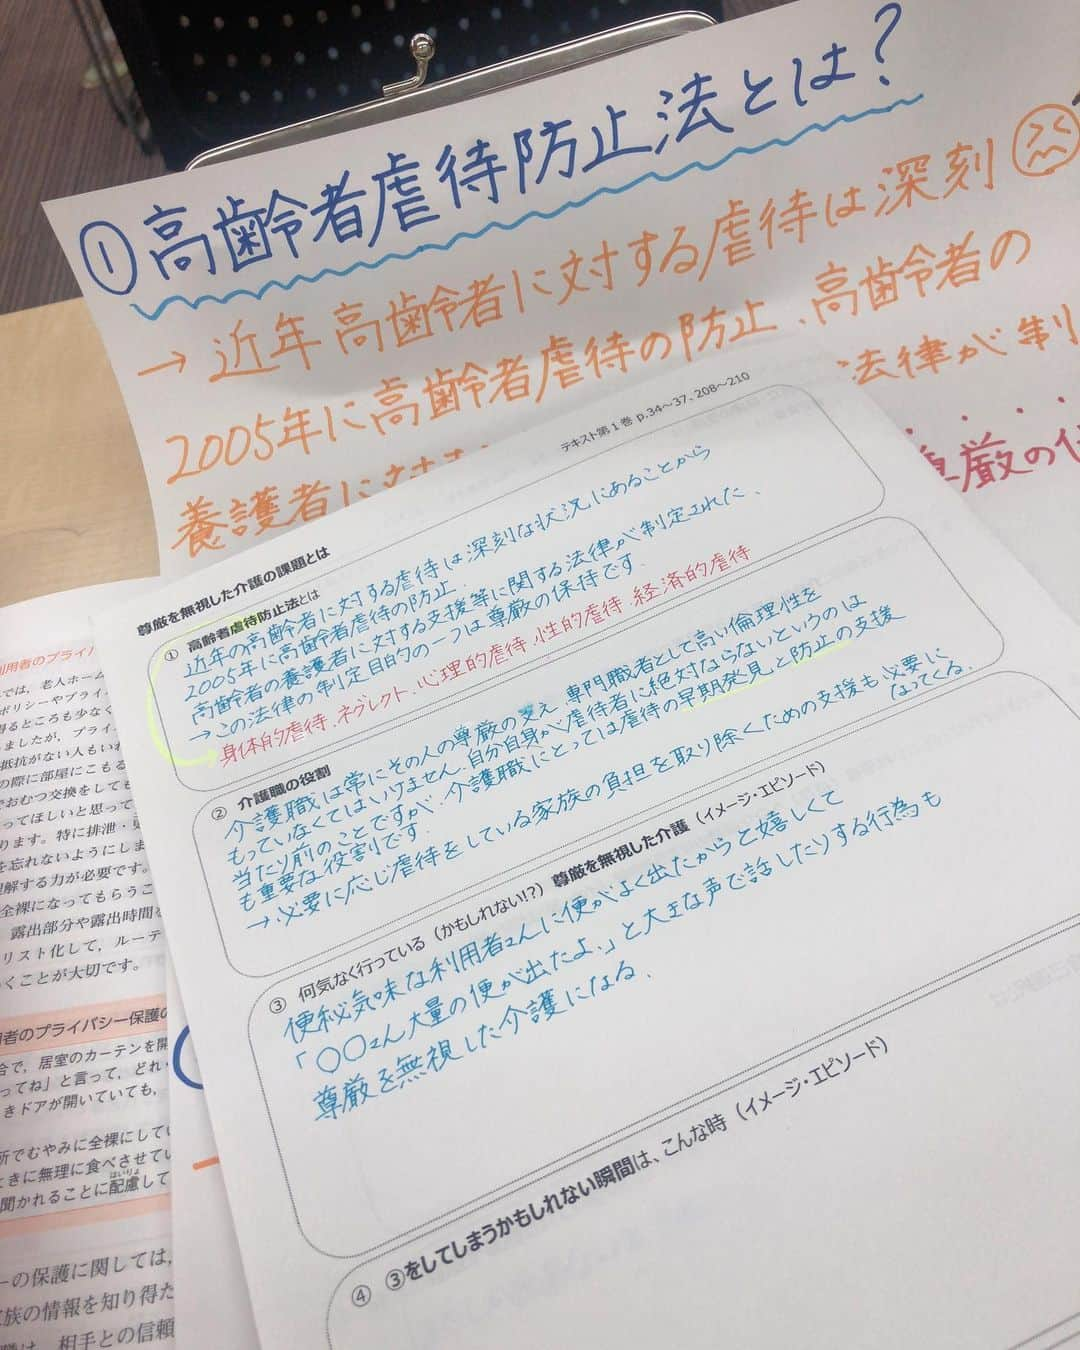 ①高齢者虐待防止法とは?
→近年高齢者に対する虐待は深刻
2005年に高齢者虐待の防止、高齢者の
養護者に対
法律が制
尊厳の
テキスト第1巻 p.34~37、208~210
尊厳を無視した介護の課題とは
① 高齢者虐待防止法とは
近年の高齢者に対する虐待は深刻な状況にあることから
2005年に高齢者虐待の防止、
高齢者の養護者に対する支援等に関する法律が制定された.
→この法律の制定目的の一つは尊厳の保持です.
身体的虐待、ネグレクト、心理的虐待、性的虐待、経済的虐待
② 介護職の役割
介護職は常にその人の尊厳の支え、専門職者として高い倫理性を
もっていなくてはいけません.自分自身が虐待者に絶対ならないというのは
当たり前のことですが、介護職にとっては虐待の早期発見と防止の支援
も重要な役割です.
→必要に応じ虐待をしている家族の負担を取り除くための支援も必要に
なってくる.
③ 何気なく行っている(かもしれない!?)尊厳を無視した介護(イメージ・エピソード)
便秘気味な利用者さんに便がよく出たからと嬉しくて
「〇〇さん大量の便が出たよ.」と大きな声で話したりする行為も
尊厳を無視した介護になる.
④ ③をしてしまうかもしれない瞬間は、こんな時(イメージ・エピソード)
利用者のプライバ
では、老人ホーム
ポリシーやプライ
得るところも少なく
ましたが、プライ
抵抗がない人もいれ
の際に部屋にこもる
でおむつ交換をしても
ってほしいと思って
ります。特に排泄・
を忘れないようにしま
理解する力が必要です。
全裸になってもらうこ
露出部分や露出時間を
リスト化して、ルーテ
くことが大切です。
用者のプライバシー保護の
合で、居室のカーテンを開
ってね」と言って、どれ
きドアが開いていても、
所でむやみに全裸にしてい
ときに無理に食べさせてい
聞かれることに配慮して
はいりょ
ーの保護に関しては、
族の情報を知り得た
相手との信頼